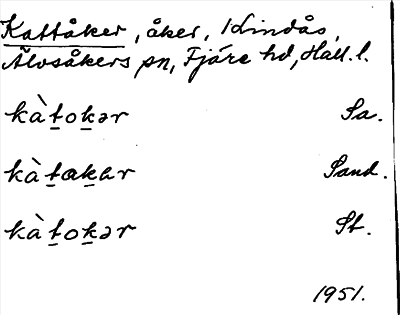 Kattåker, åker, Lindås,
Älvsåkers sn, Fjäre hd, Hall. l.
kàtokər Sa.
kàtakər Sand.
kàtokər St.
1951.